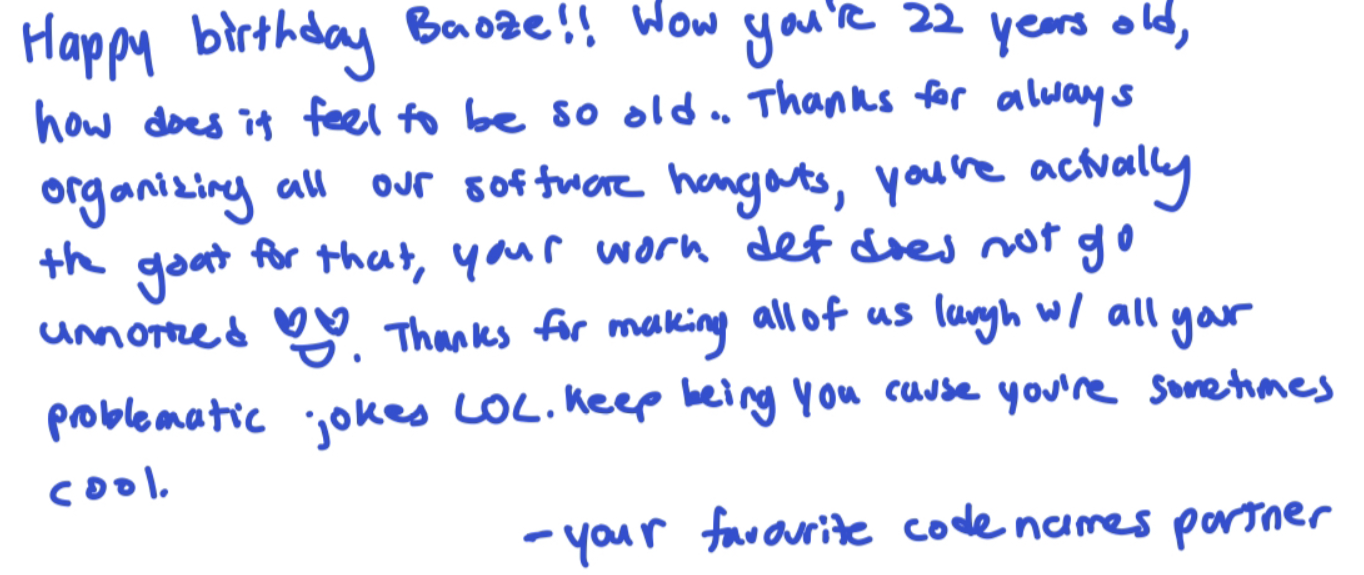 Happy birthday Baoze!! Wow you're 22 years old,
how does it feel to be so old.. Thanks for always
organizing all our software hangouts, you're actually
the goat for that, your work def does not go
unnoticed 😍. Thanks for making all of us laugh w/ all your
problematic jokes LOL. Keep being you cause you're sometimes
cool.
- your favourite codenames partner